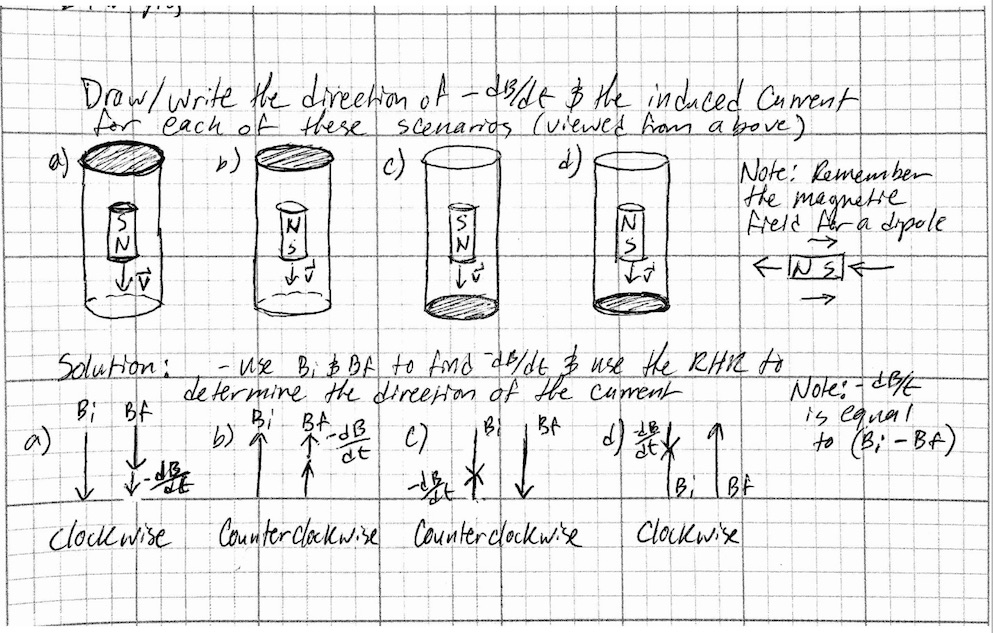 Draw/write the direction of -dB/dt & the induced current
for each of these scenarios (viewed from above)
a) b) c) d)
S N N S S N N S
v⃗ v⃗ v⃗ v⃗
Note: Remember
the magnetic
field for a dipole
N S
Solution: - use Bi & Bf to find -dB/dt & use the RHR to
determine the direction of the current
Note: -dB/t
is equal
to (Bi - Bf)
a) Bi Bf -dB/dt
b) Bi Bf -dB/dt
c) Bi Bf -dB/dt
d) -dB/dt Bi Bf
Clockwise Counterclockwise Counterclockwise Clockwise